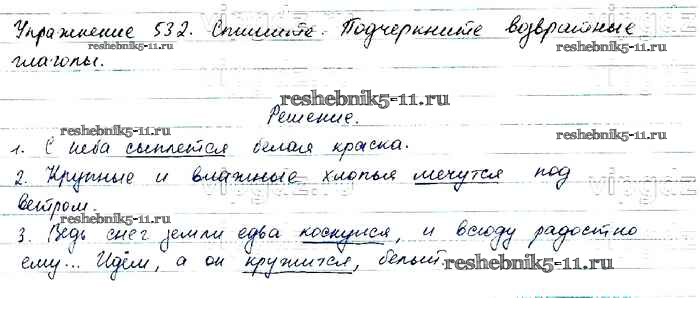 Упражнение 532. Спишите. Подчеркните возвратные
reshebnik5-11.ru
глаголы.
reshebnik5-11.ru
Решение.
reshebnik5-11.ru
reshebnik5-11.ru
1. С неба сыплется белая краска.
2. Крупные и влажные хлопья мечутся под
vipgdz
ветром.
reshebnik5-11.ru
3. Ведь снег земли едва коснулся, и всюду радостно
ему... Идём, а он кружится, белый.
reshebnik5-11.ru
reshebnik5-11.ru